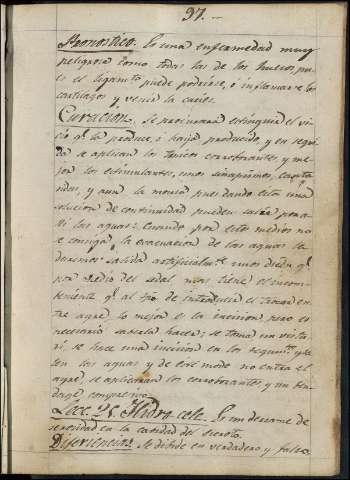 37.
Pronostico. Es una enfermedad muy
peligrosa como todas las de los huesos, pu-
es el ligamto puede podrirse, ó inflamarse los
cartilagos y venir la caries.
Curacion. Se procurará extinguir el vi-
cio qe la produce, ó haya producido, y en segui-
da se aplican los tonicos corroborantes, y me-
jor los estimulantes, unos sinapismos, canta
ridas, y aun la moxa pues dando esta una
solucion de continuidad pueden salir por a-
lli las aguas: Cuando por estos medios no
se consiga la evacuacion de las aguas la
daremos salida artificialmte unos dicen qe
por medio del sedal mas tiene el incon-
veniente qe al tpo de introducir el trocar en-
tre ayre, lo mejor es la incision pero es
necesario saberla hacer; se toma un vistu
rí, se hace una incision en los tegumtos y sa-
len las aguas y de este modo no entra el
ayre, se aplicarán los corroborantes y un ben-
dage compresivo.
Lecc. 25. Hidrocele. Es un derrame de
serosidad en la cavidad del escroto.
Diferiencias. Se dibide en verdadero y falso